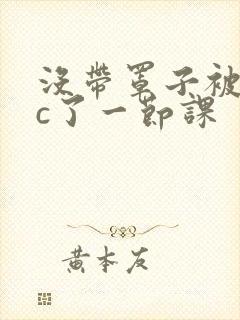 没带罩子被
c了一节課
黄本友